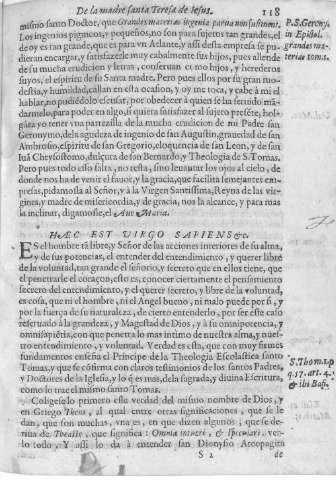 De la madre santa Teresa de Iesus. 118
mismo santo Doctor, que Grandes materias ingenia parua non sustinent.
Los ingenios pigmeos, y pequeños, no son para sujetos tan grandes, el
de oy es tan grande, que es para vn Atlante, y assi desta empresa se pu-
dieran encargar, y satisfazerle muy cabalmente sus hijos, pues allende
de su mucha erudicion y letras, conseruan como hijos, y herederos
suyos, el espiritu de su Santa madre. Pero pues ellos por su gran mo-
destia, y humildad, callan en esta ocasion, y oy me toca, y cabe à mi el
hablar, no pudiédolo escusar, por obedecer à quien se ha seruido mã-
darmelo, para poder en algo siquiera satisfazer al sujeto presẽte, hol-
gàra yo tener vna partezilla de la mucha erudicion de mi Padre san
Geronymo, de la agudeza de ingenio de san Augustin, grauedad de san
Ambrosio, espiritu de san Gregorio, eloquencia de san Leon, y de san
Iuã Chrysostomo, dulçura de san Bernardo, y Theologia de S. Tomas.
Pero pues todo esto falta, no resta, sino leuantar los ojos al cielo, de
donde nos ha de venir el fauor, y la gracia, que facilita semejantes em-
presas, pidamosla al Señor, y à la Virgen Santissima, Reyna de las vir-
gines, y madre de misericordia, y de gracia, nos la alcance, y para mas
la inclinar, digamosle, el Aue Maria.
HAEC EST VIRGO SAPIENS &c.
ES el hombre tã libre, y Señor de las acciones interiores de su alma,
y de sus potencias, el entender del entendimiento, y querer libre
de la voluntad, tan grande el señorio, y secreto que en ellos tiene, que
el penetrarle el coraçon, esto es, conocer ciertamente el pensamiento
secreto del entendimiento, y el querer secreto, y libre de la voluntad,
es cosa, que ni el hombre, ni el Angel bueno, ni malo puede por si, y
por la fuerça de su naturaleza, de cierto entenderlo, por ser este caso
reseruado à la grandeza, y Magestad de Dios, y à su omnipotencia, y
omnisapiẽcia, con que penetra lo mas intimo de nuestra alma, y nues-
tro entendimiento, y voluntad. Verdad es esta, que con muy firmes
fundamentos enseña el Principe de la Theologia Escolastica santo
Tomas, y que se cõfirma con claros testimonios de los santos Padres,
y Doctores de la Iglesia, y lo q̃ es mas, de la sagrada, y diuina Escritura,
como lo trae el mismo santo Tomas.
Coligese lo primero esta verdad del mismo nombre de Dios, y
en Griego Theos, al qual entre otras significaciones, que se le
dan, que son muchas, vna es, en que dizen algunos, que se de-
riua de Theaste, que significa: Omnia intueri, & speculari, ver-
lo todo, Y assi lo dà à entender san Dionysio Areopagita
S 2 de
P. S. Gerony.
in Epistol.
grandes ma-
teriae tom. 1.
S. Thom. 1. p
q. 57. art. 4.
& ibi Bañ.